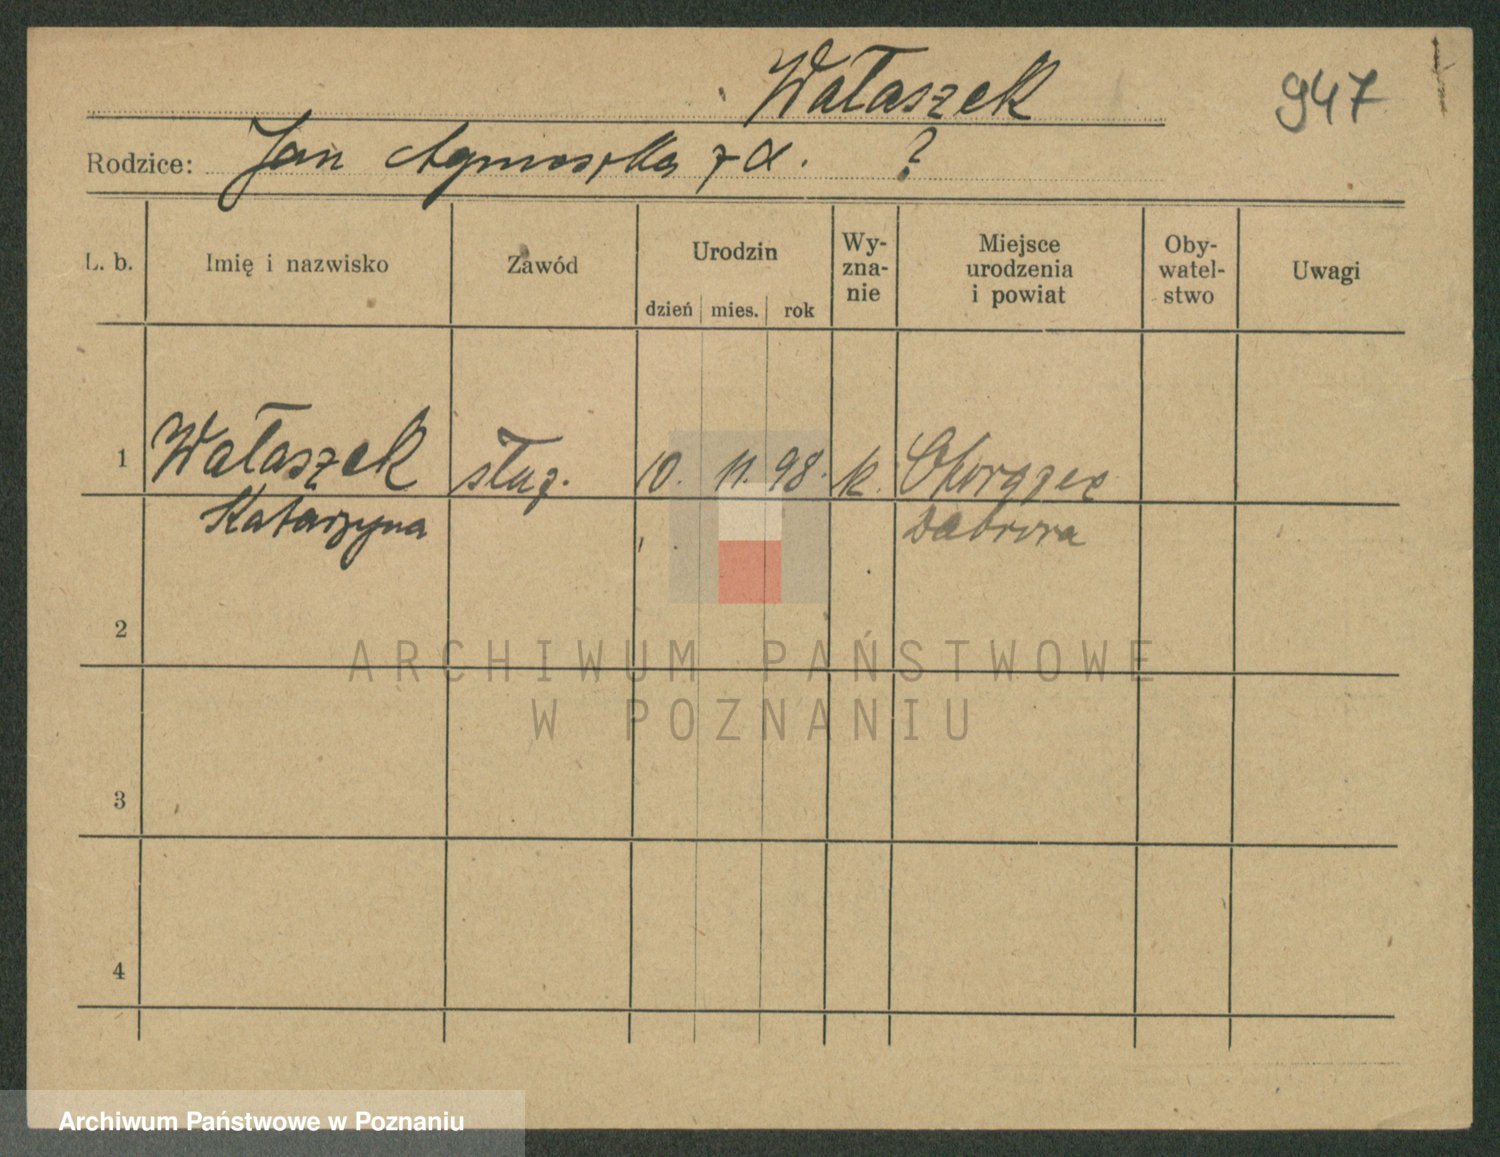 Wałaszek
947
Rodzice: Jan Agnieszka z d. ?
L. b. Imię i nazwisko Zawód Urodzin dzień mies. rok Wy- zna- nie Miejsce urodzenia i powiat Oby- watel- stwo Uwagi
1 Wałaszek służ. 10. 11. 98. k.
Katarzyna
2
3
4
ARCHIWUM PAŃSTWOWE
W POZNANIU
Archiwum Państwowe w Poznaniu